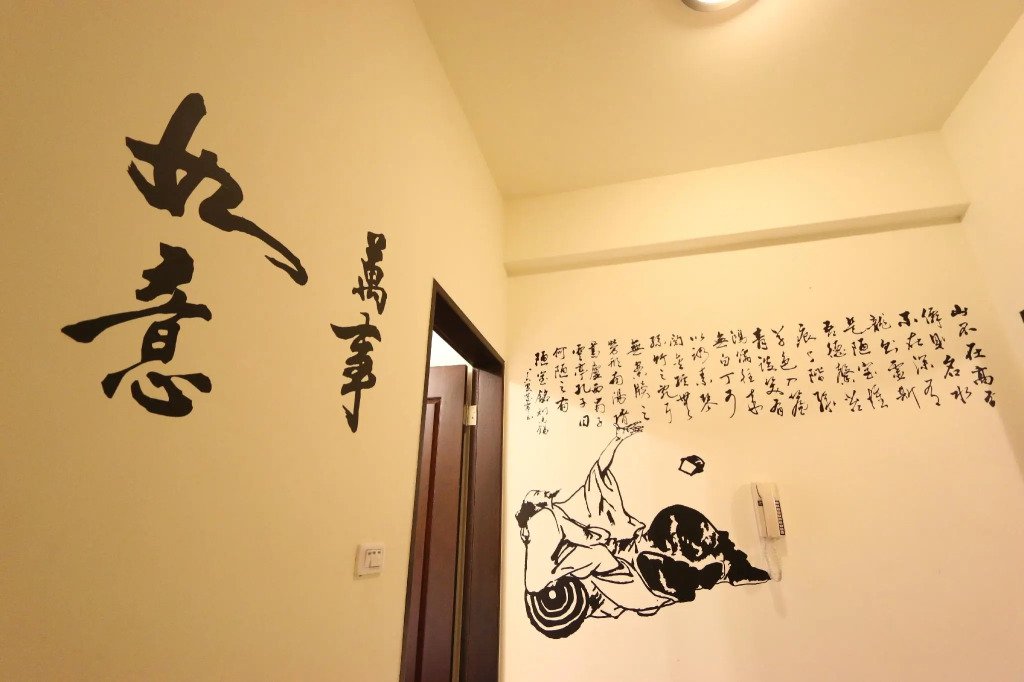 萬事
如意
山不在高有
僊則名水
不在深有
龍則靈斯
是陋室惟
吾德馨苔
痕上階綠
草色入簾
青談笑有
鴻儒往來
無白丁可
以調素琴
閱金經無
絲竹之亂耳
無案牘之
勞形南陽諸
葛廬西蜀子
雲亭孔子曰
何陋之有
陋室銘 劉禹錫